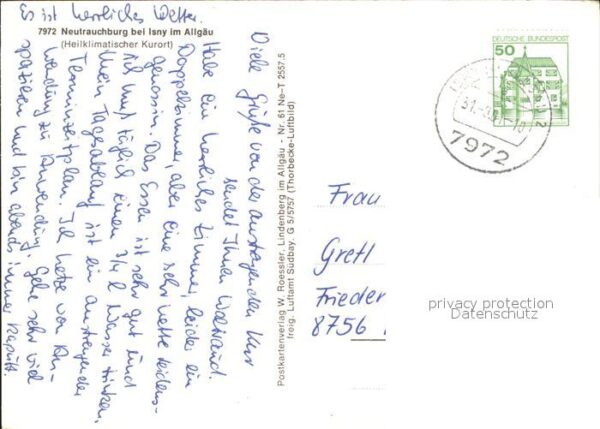 Es ist herrliches Wetter.
7972 Neutrauchburg bei Isny im Allgäu
(Heilklimatischer Kurort)
Viele Grüße von der anstrengenden Kur
sendet Ihnen
Habe ein herrliches Zimmer, leider ein
Doppelzimmer, aber eine sehr nette Leidens-
genossin. Das Essen ist sehr gut und
ich muß täglich einen 3/4 l Wasser trinken.
Mein Tagesablauf ist ein anstrengender
Terminzeitplan. Ich hetze von An-
wendung zu Anwendung. Gehe sehr viel
spazieren und bin abends immer kaputt.
Postkartenverlag W. Roessler, Lindenberg im Allgäu - Nr. 61 Ne-T 2557,5
freig. Luftamt Südbay. G 5/5757 (Thorbecke-Luftbild)
50
DEUTSCHE BUNDESPOST
7972
Frau
Gretl
Frieder
8756
privacy protection
Datenschutz